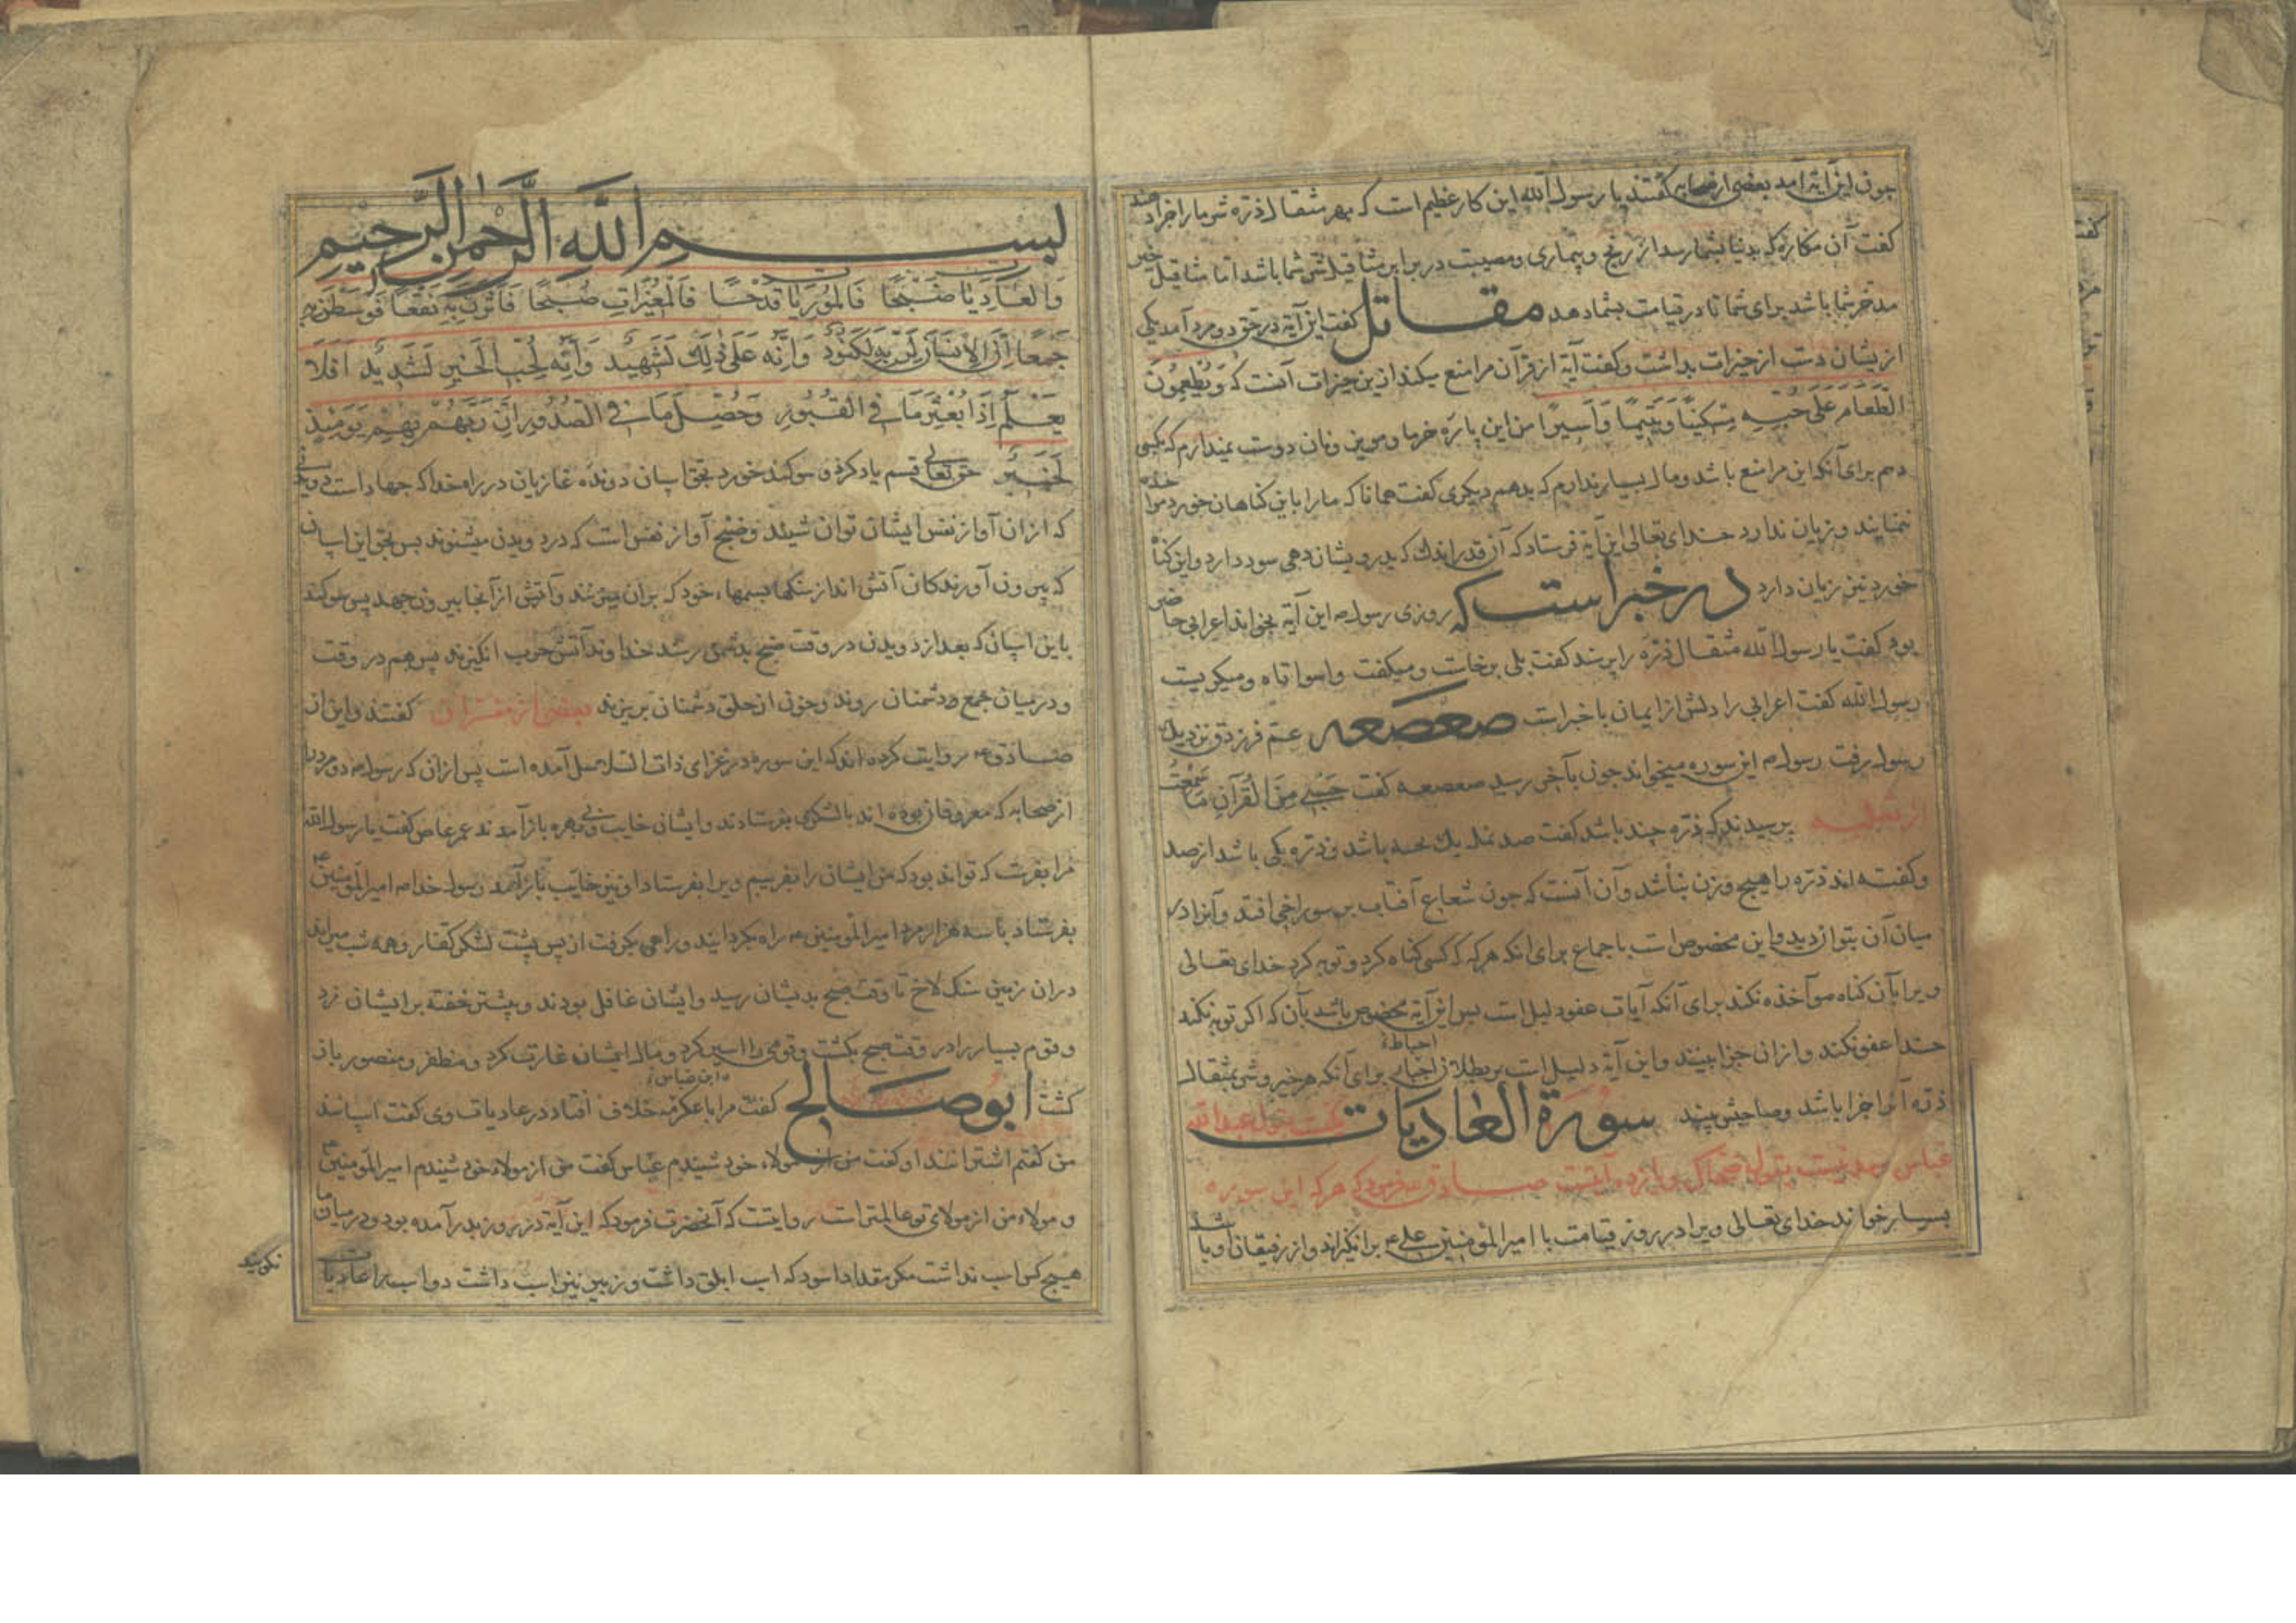 چون این آیه آمد بعضی از صحابه گفتند یا رسول الله این کار عظیم است که بهر مثقال ذره شر ما را جزا دهند
گفت آن مکاره که بدنیا بشما رسد از رنج و بیماری و مصیبت در برابر مثاقیل شر شما باشد اما مثاقیل خیر
مدخر شما باشد برای شما تا در قیامت بشما دهد مقاتل گفت این آیه در حق دو مرد آمد یکی
ازیشان دست از خیرات بداشت و گفت آیة از قرآن مرا منع میکند ازین خیرات آنست که وَيُطْعِمُونَ
الطَّعَامَ عَلَى حُبِّهِ مِسْكِينًا وَيَتِيمًا وَأَسِيرًا من این پاره خرما و مویز و نان دوست نمیدارم که بکسی
دهم برای آنکه این مرا منع باشد و مال بسیار ندارم که بدهم دیگری گفت همانا که ما را باین کناهان خورد مواخذه
ننمایند و زیان ندارد خدای تعالی این آیه فرستاد که آن قدر اندك که بدرویشان دهی سود دارد و این کناه
خورد نیز زیان دارد در خبر است که روزی رسول ص این آیة بخواند اعرابی حاضر
بود گفت یا رسول الله مثقال ذرّه را پرسند گفت بلی برخاست و میگفت واسوأتاه و میگریست
رسول الله گفت اعرابی را دلش از ایمان با خبر است صعصعه عم فرزدق نزدیك
رسول رفت رسول ص این سوره میخواند چون بآخر رسید صعصعه گفت حَسْبِي مِنَ الْقُرْآنِ مَا سَمِعْتُ
از ثعلبه پرسیدند که ذره چند باشد گفت صد نمله یك حبه باشد و ذره یکی باشد از صد
و گفته اند ذره را هیچ وزن نباشد و آن آنست که چون شعاع آفتاب بر سوراخی افتد و آنرا در
میان آن بتوان دید و این مخصوص است باجماع برای انکه هرکه که کسی گناه کرد و توبه کرد خدای تعالی
ویرا بآن گناه مواخذه نکند برای آنکه آیات عفو دلیل است پس این آیة مخصوص باشد بآن که اگر توبه نکند
خدا عفو نکند و ازان جزا بینند و این آیة دلیل است بر بطلان احباط برای آنکه هر خیر و شر بمثقال
ذرّه آنرا جزا باشد و صاحبش بیند سورة العادیات بقول عبدالله
عباس مدنیست بقول ضحاک و یازده آیتست صادق ع فرمود که هرکه این سوره
بسیار خواند خدای تعالی ویرا در روز قیامت با امیر المؤمنین علی ع برانگیزاند و از رفیقان او باشد
بسم الله الرحمن الرحیم
وَالْعَادِيَاتِ ضَبْحًا فَالْمُورِيَاتِ قَدْحًا فَالْمُغِيرَاتِ صُبْحًا فَأَثَرْنَ بِهِ نَقْعًا فَوَسَطْنَ بِهِ
جَمْعًا إِنَّ الْإِنْسَانَ لِرَبِّهِ لَكَنُودٌ وَإِنَّهُ عَلَى ذَلِكَ لَشَهِيدٌ وَإِنَّهُ لِحُبِّ الْخَيْرِ لَشَدِيدٌ أَفَلَا
يَعْلَمُ إِذَا بُعْثِرَ مَا فِي الْقُبُورِ وَحُصِّلَ مَا فِي الصُّدُورِ إِنَّ رَبَّهُمْ بِهِمْ يَوْمَئِذٍ
لَخَبِيرٌ حق تعالی قسم یاد کرد و سوگند خورد بحق اسپان دونده غازیان در راه خدا که جهاد است
که ازان آواز نفس ایشان توان شنید و ضبح آواز نفس است که در دویدن میشنوند پس بحق این اسپان
که بیرون آورندگان آتش اند از سنگها بسمها، خود که بران میزنند و آتش از آنجا بیرون جهد پس سوگند
باین اسپان که بعد از دویدن در وقت صبح بدشمن رسند خداوند آتش حرب انگیزند پس هم در وقت
و در میان جمع دشمنان روند و خون از حلق دشمنان بریزند بعضی از مفسران گفتند و این از
صادق ع روایت کرده اند که این سوره در غزای ذات السلاسل آمده است پس ازان که رسول ص دو مرد را
از صحابه که معروفان بوده اند با لشکری بفرستادند و ایشان خایب و بی بهره باز آمدند عمر عاص گفت یا رسول الله
مرا بفرست که تواند بود که من ایشان را بفریبم ویرا بفرستاد او نیز خایب باز آمد رسول خدا ص امیر المؤمنین ع
بفرستاد با سه هزار مرد امیر المؤمنین ع راه بگردانید و راهی بگرفت از پس پشت لشکر کفار و همه شب میراند
دران زمین سنگ لاخ تا وقت صبح بدیشان رسید و ایشان غافل بودند و بیشتر خفته بر ایشان زد
و قوم بسیار را در وقت صبح بکشت و قومی را اسیر کرد و مال ایشان غارت کرد و مظفر و منصور باز
گشت ابوصالح گفت مرا با عکرمه خلاف افتاد در عادیات وی گفت اسپانند
من گفتم اشترانند او گفت من از مولاء خود شنیدم ع‍باس گفت من از مولاء خود شنیدم امیر المؤمنین ع
و مولاء من از مولای تو عالمتر است روایتست که آنحضرت فرمود که این آیة در روز بدر آمده بود و در میان ما
هیچ کس اسب نداشت مگر مقداد اسود که اسب ابلق داشت و زبیر نیز اسب داشت دو اسب را عادیات
نگویند